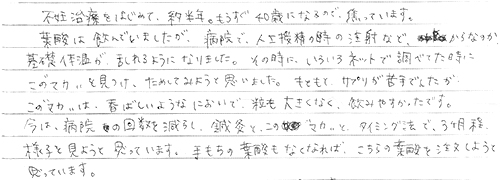 不妊治療をはじめて、約半年。もうすぐ40歳になるので、焦っています。
葉酸は飲んでいましたが、病院で、人工授精の時の注射などで、からなのか、
基礎体温が、乱れるようになりました。その時に、いろいろネットで調べてた時に
このマカを見つけ、ためしてみようと思いました。もともと、サプリが苦手でしたが、
このマカは、香ばしいようなにおいで、粒も大きくなく、飲みやすかったです。
今は、病院の回数を減らし、鍼灸と、このマカと、タイミング法で、3ヶ月程、
様子を見ようと思っています。手もちの葉酸もなくなれば、こちらの葉酸を注文しようと
思っています。